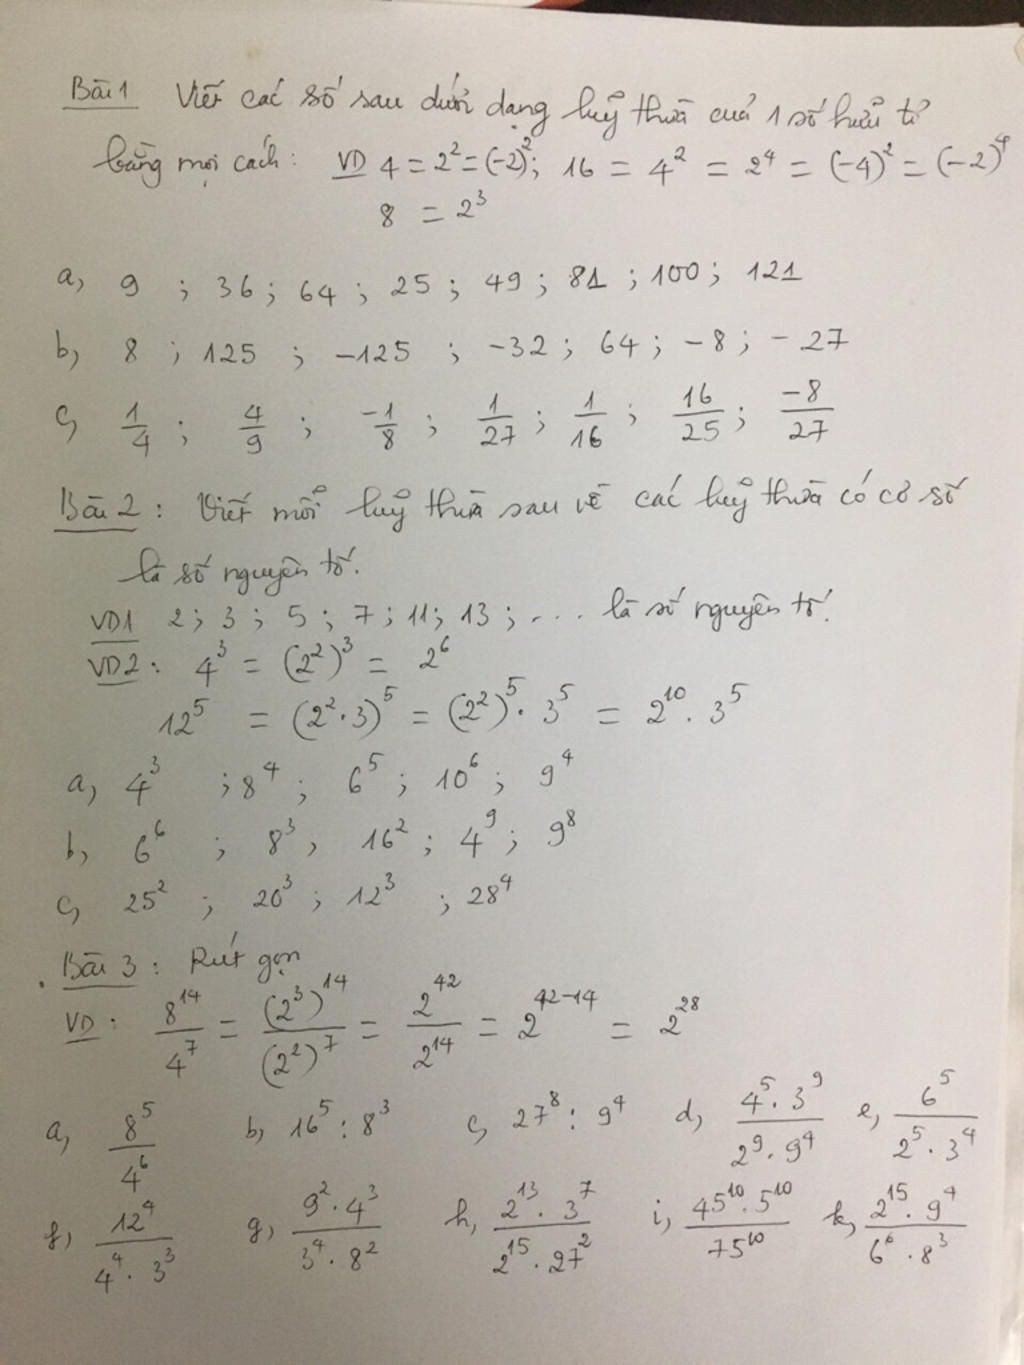 Bài 1 Viết các số sau dưới dạng luỹ thừa của 1 số hữu tỉ
bằng mọi cách: VD 4 = 2² = (-2)²; 16 = 4² = 2⁴ = (-4)² = (-2)⁴
8 = 2³
a, 9 ; 36 ; 64 ; 25 ; 49 ; 81 ; 100 ; 121
b, 8 ; 125 ; -125 ; -32 ; 64 ; -8 ; -27
c, 1/4 ; 4/9 ; -1/8 ; 1/27 ; 1/16 ; 16/25 ; -8/27
Bài 2 : Viết mỗi luỹ thừa sau về các luỹ thừa có cơ số
là số nguyên tố.
VD1 2 ; 3 ; 5 ; 7 ; 11 ; 13 ; ... là số nguyên tố.
VD2 : 4³ = (2²)³ = 2⁶
12⁵ = (2².3)⁵ = (2²)⁵. 3⁵ = 2¹⁰. 3⁵
a, 4³ ; 8⁴ ; 6⁵ ; 10⁶ ; 9⁴
b, 6⁶ ; 8³ , 16² ; 4⁹ ; 9⁸
c, 25² ; 20³ ; 12³ ; 28⁴
Bài 3 : Rút gọn
VD : 8¹⁴/4⁷ = (2³)¹⁴/(2²)⁷ = 2⁴²/2¹⁴ = 2⁴²⁻¹⁴ = 2²⁸
a, 8⁵/4⁶ b, 16⁵ : 8³ c, 27⁸ : 9⁴ d, 4⁵. 3⁹/2⁹. 9⁴ e, 6⁵/2⁵. 3⁴
f, 12⁴/4⁴. 3³ g, 9². 4³/3⁴. 8² h, 2¹³. 3⁷/2¹⁵. 27² i, 45¹⁰. 5¹⁰/75¹⁰ k, 2¹⁵. 9⁴/6⁶. 8³